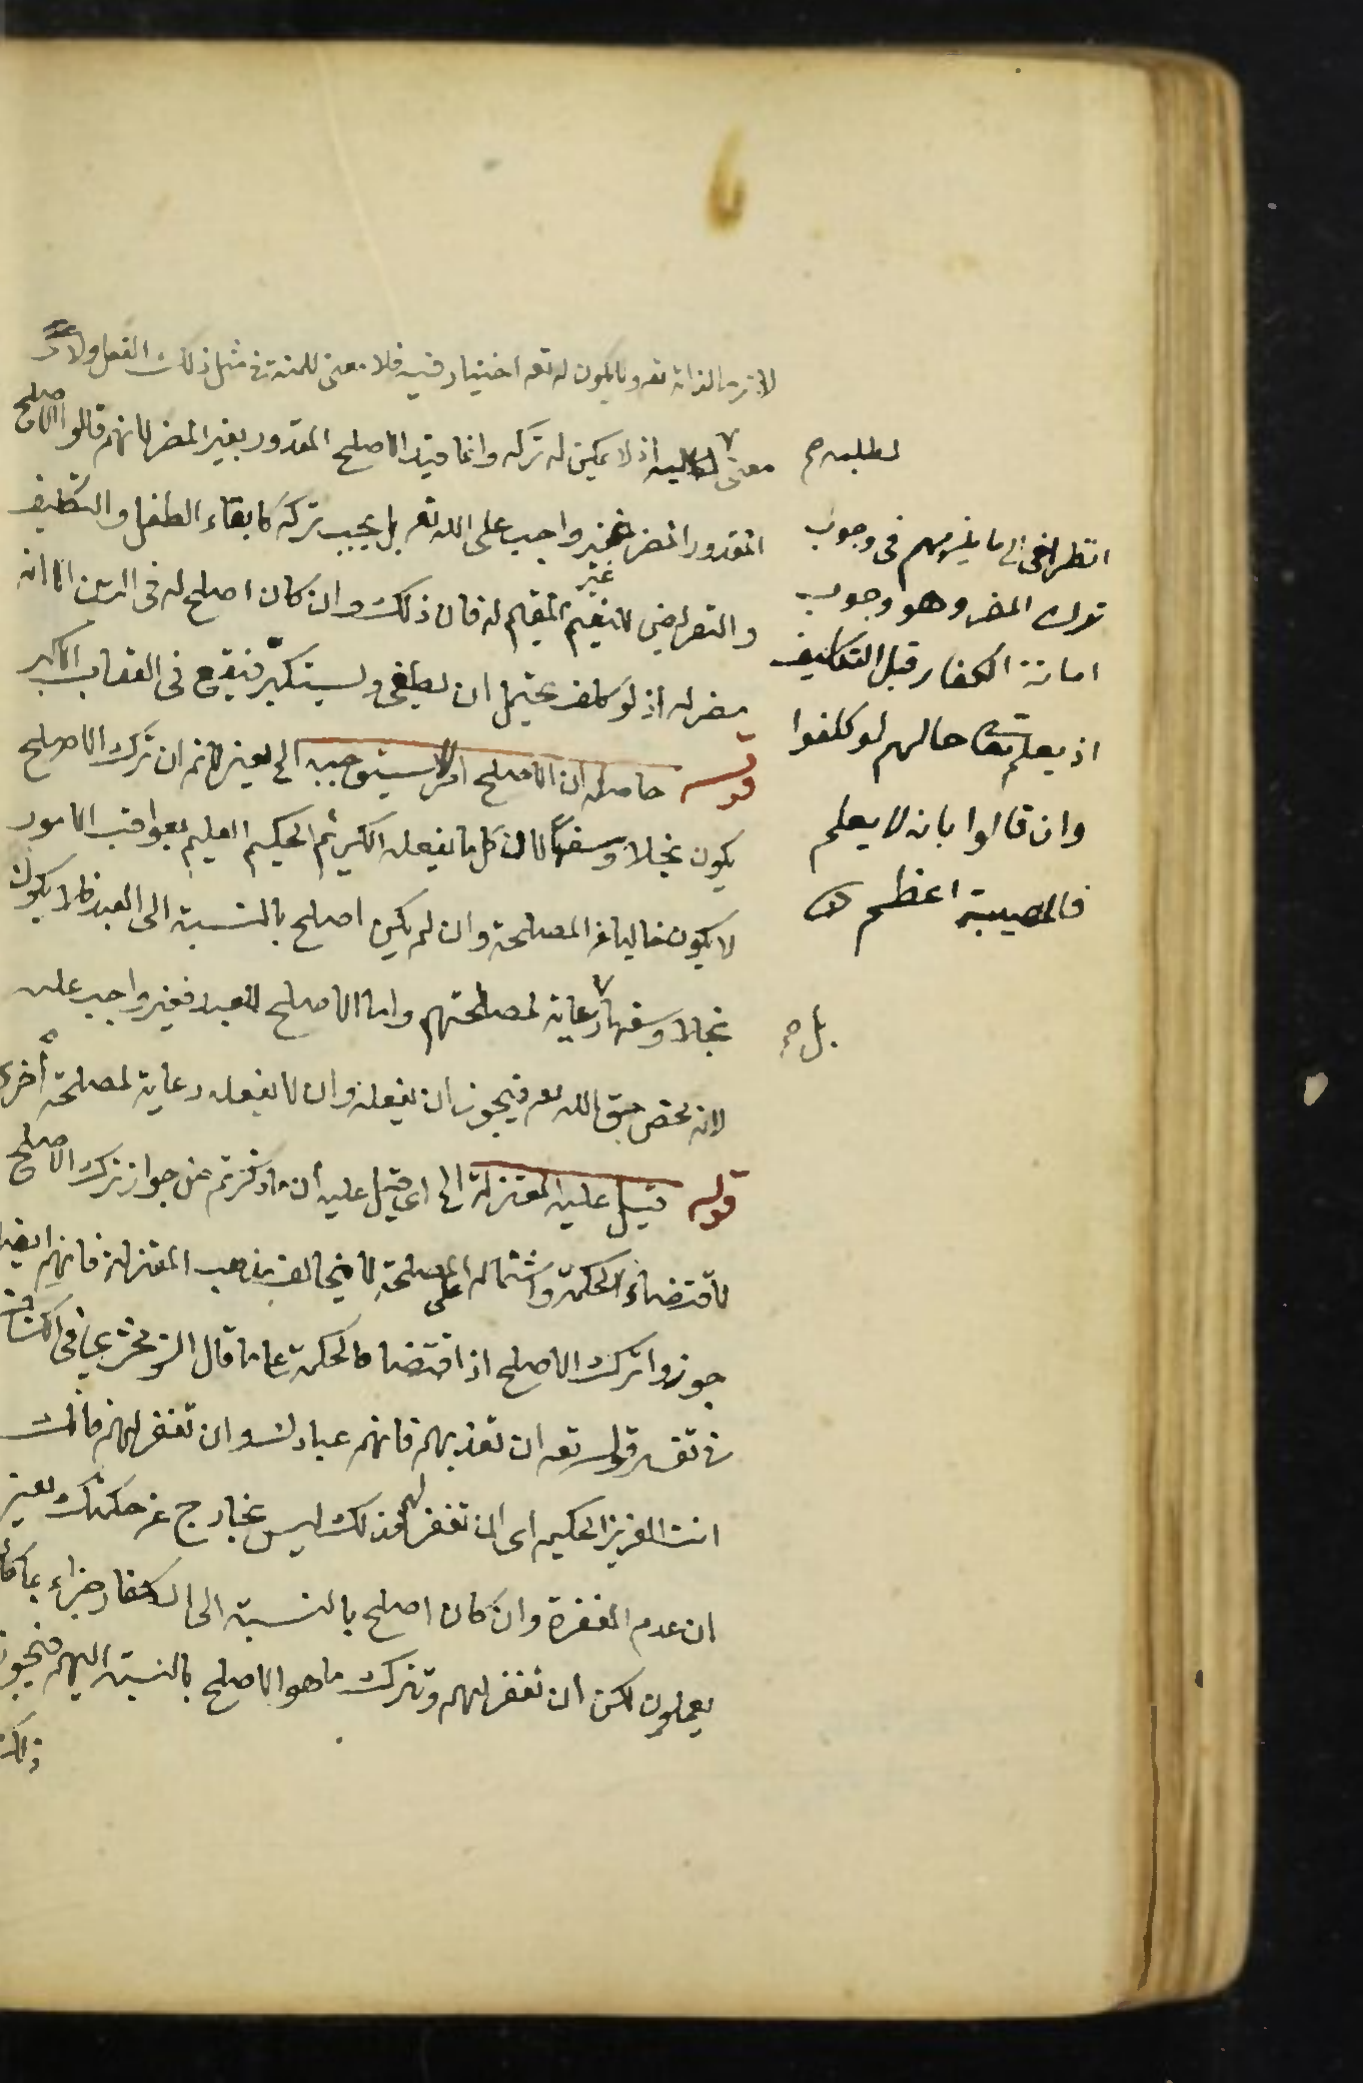 لازم لذاته تعه ولا يكون له تعه اختيار فيه فلا معنى للمنة في مثل ذلك الفعل ولا
معنى لطلبه اذ لا يمكن له تركه وانما قيد الاصلح المقدور بغير المضر لانهم قالوا الاصلح
المقدور المضر غير واجب على الله تعه بل يجب تركه كابقاء الطفل والتكليف
والتعريض للنعيم المقيم له فان ذلك وان كان اصلح له في الدين الا انه
مضر له اذ لو كلف يحتمل ان يطغى ويستكبر فيقع في العقاب الاكبر
قوله حاصله ان الاصلح امر لا يستوجبه الخ يعني لانم ان ترك الاصلح
يكون بخلا وسفها لان كل ما يفعله الكريم الحكيم العليم بعواقب الامور
لا يكون خاليا عن المصلحة وان لم يكن اصلح بالنسبة الى العبد فلا يكون
بخلا وسفها رعاية لمصلحتهم واما الاصلح للعبد فغير واجب عليه
لانه محض حق الله تعه فيجوز ان يفعله وان لا يفعله رعاية لمصلحة أخرى
قوله قيل عليه المعتزلة الخ اى قيل عليه ان ما ذكرتم من جواز ترك الاصلح
لاقتضاء الحكمة واشتماله على المصلحة لا يخالف مذهب المعتزلة فانهم ايضا
جوزوا ترك الاصلح اذا اقتضاه الحكمة على ما قال الزمخشري في الكشاف
في تفسير قوله تعه ان تعذبهم فانهم عبادك وان تغفر لهم فانك
انت العزيز الحكيم اى ان تغفر لهم فذلك ليس بخارج عن حكمتك يعني
ان عدم المغفرة وان كان اصلح بالنسبة الى الكفار جزاء بما كانوا
يعملون لكن ان تغفر لهم وتترك ما هو الاصلح بالنسبة اليهم فيجوز
ذلك
لطلبه صح
انظر الى ما يلزمهم فى وجوب
ترك المضر وهو وجوب
اماتة الكفار قبل التكليف
اذ يعلم تعا حالهم لو كلفوا
وان قالوا بانه لا يعلم
فالمصيبة اعظم
بل صح